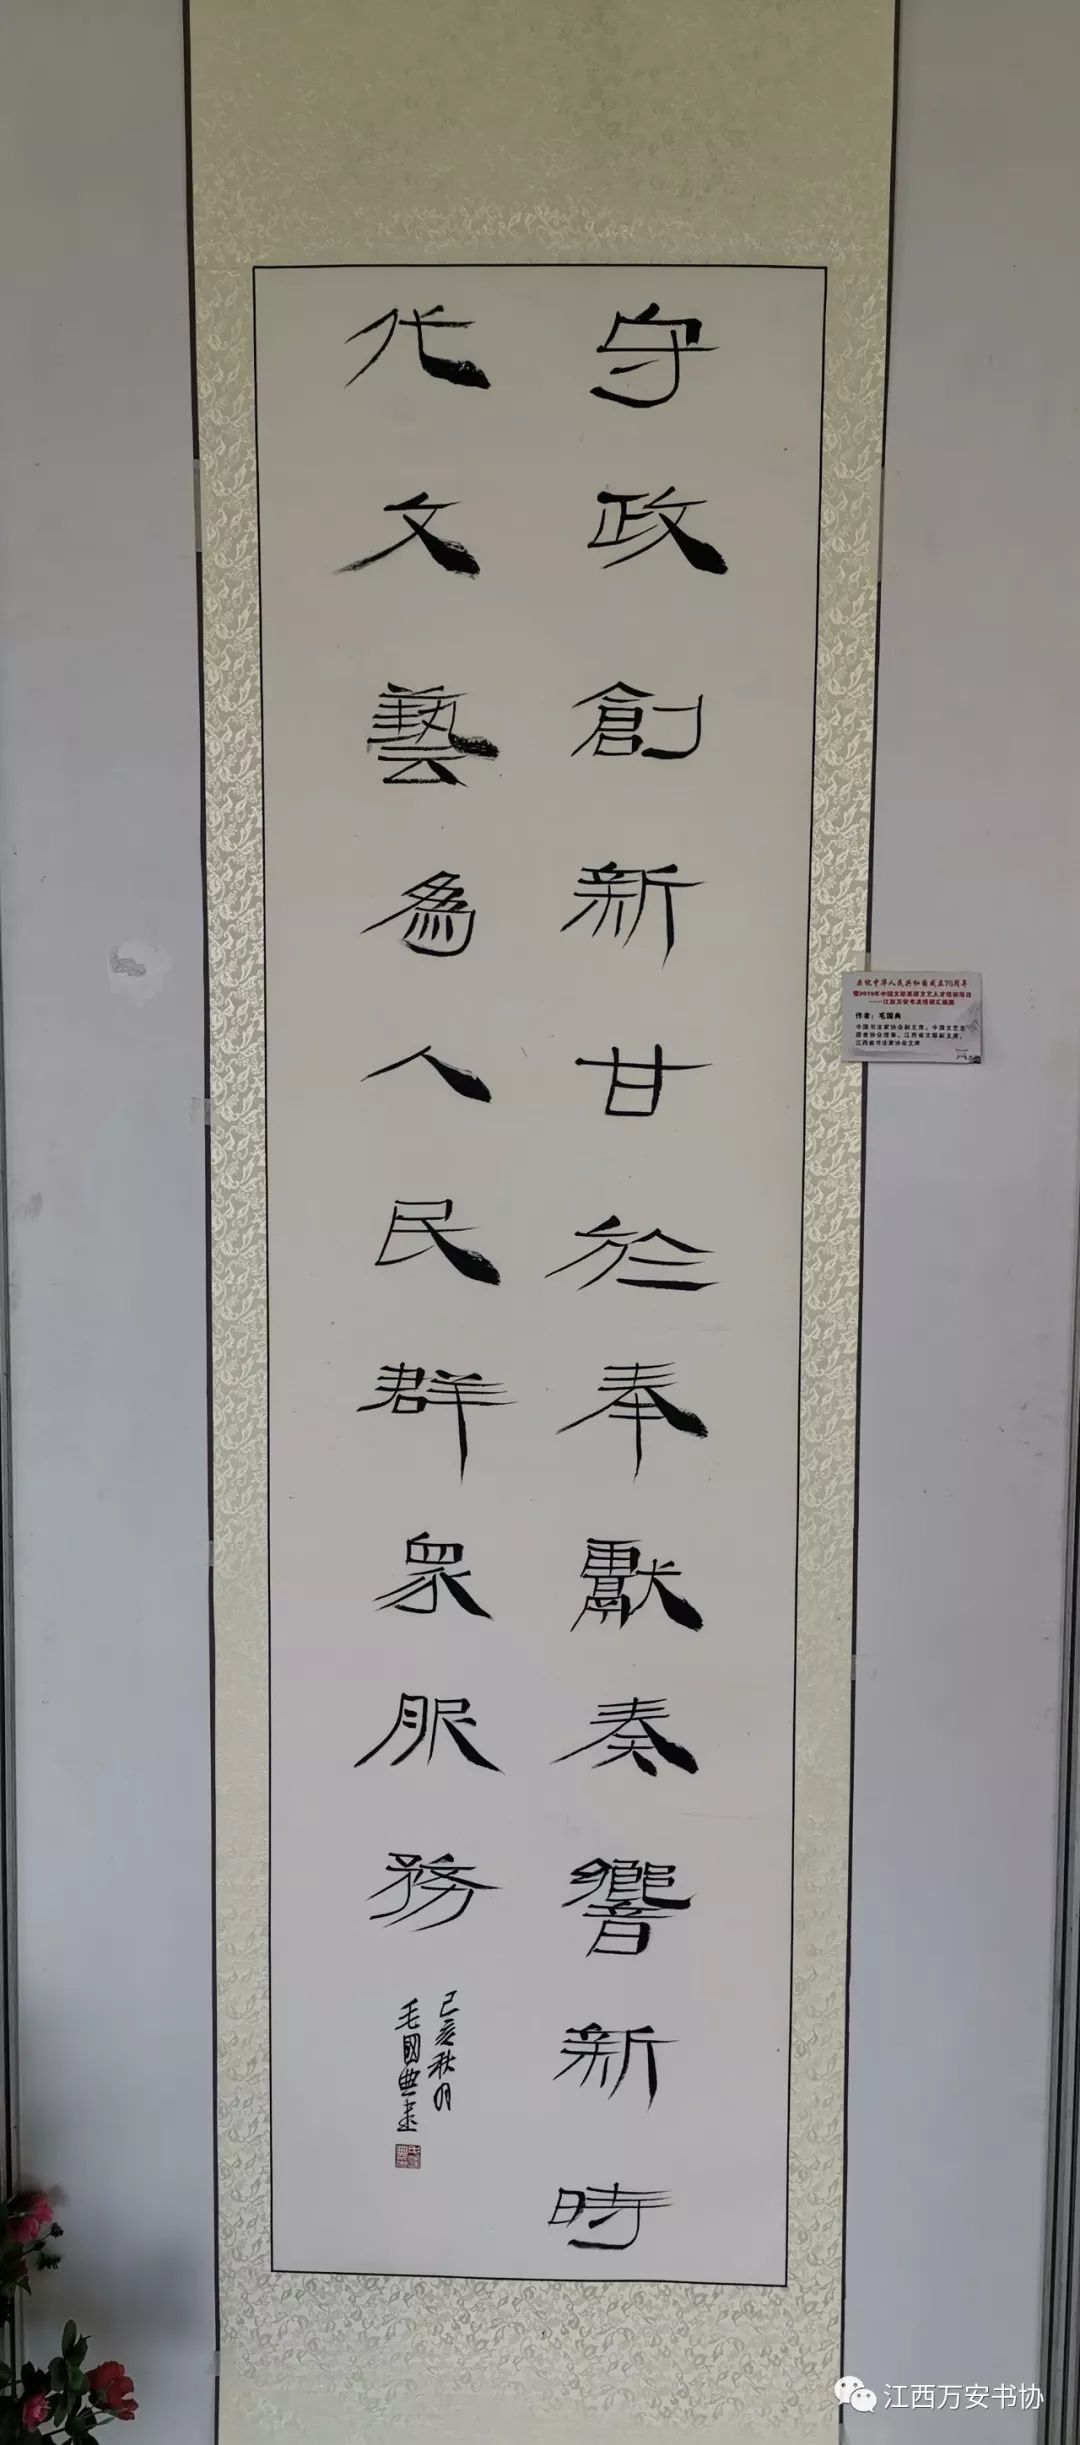 守政創新甘於奉獻奏響新時
代文藝為人民群眾服務
己亥秋月
毛國典書
庆祝中华人民共和国成立70周年
暨2019年中国文联基层文艺人才培训项目
——江西万安书法培训汇报展
作者：毛国典
中国书法家协会副主席、中国文艺志
愿者协会理事、江西省文联副主席、
江西省书法家协会主席
江西万安书协